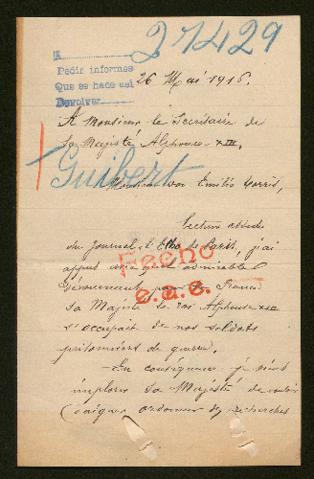 27429
Pedir informes
Que se hace así
Devolver
26 Mai 1916.
A Monsieur le Secrétaire de
Sa Majesté Alphonse XIII.
Guibert
Monsieur don Emilio Torrès,
Lecteur
du Journal l'Echo de Paris, j'ai
Fecho
appris admirable
dévouement pour la France
e.a.c.
Sa Majesté le roi Alphonse XIII
s'occupait de nos soldats
prisonniers de guerre.
En conséquence je viens
implorer Sa Majesté de vouloir
daigner ordonner des recherches